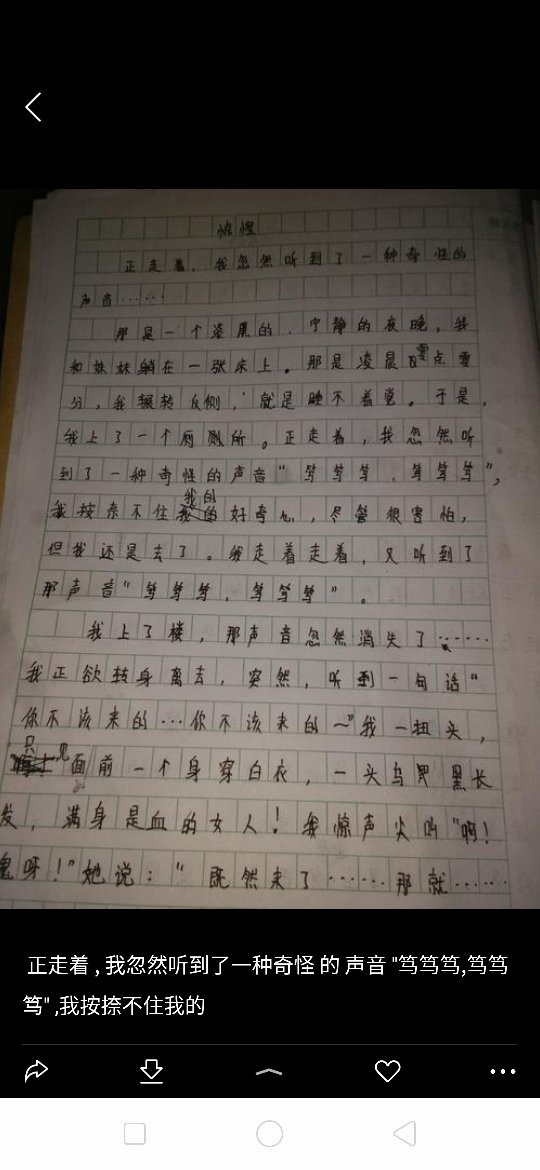 惊悝
正走着，我忽然听到了一种奇怪的
声音……
那是一个漆黑的、宁静的夜晚，我
和妹妹躺在一张床上。那是凌晨零点零
分，我辗转反侧，就是睡不着觉。于是，
我上了一个厕所。正走着，我忽然听
到了一种奇怪的声音"笃笃笃，笃笃笃"，
我按奈不住我的好奇心，尽管很害怕，
但我还是去了。我走着走着，又听到了
那声音"笃笃笃，笃笃笃"。
我上了楼，那声音忽然消失了……
我正欲转身离去，突然，听到一句话"
你不该来的…你不该来的～"我一扭头，
只见面前一个身穿白衣，一头乌黑长
发，满身是血的女人！我惊声尖叫"啊！
鬼呀！"她说："既然来了……那就……
正走着,我忽然听到了一种奇怪 的 声音 "笃笃笃,笃笃
笃" ,我按捺不住我的